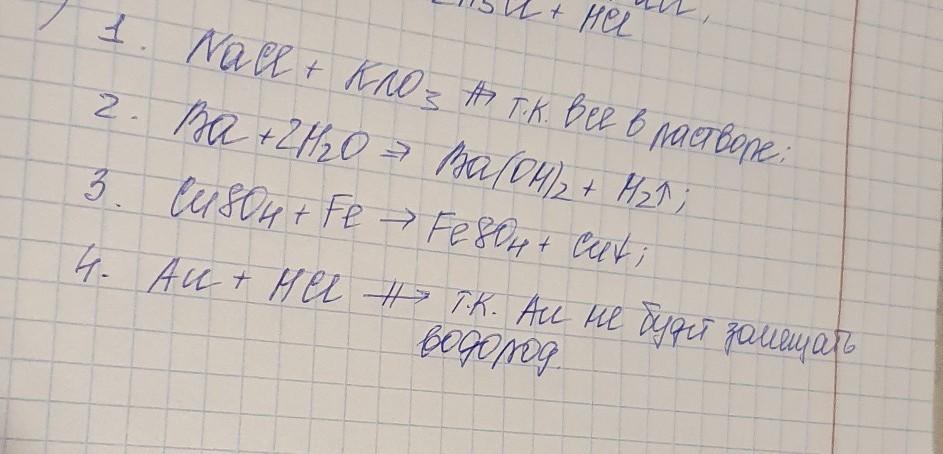 + HCl
1. NaCl + KNO3 ⇏ т.к. все в растворе;
2. Ba + 2H2O ⇒ Ba(OH)2 + H2↑;
3. CuSO4 + Fe → FeSO4 + Cu↓;
4. Au + HCl ↛ т.к. Au не будет замещать
водород.